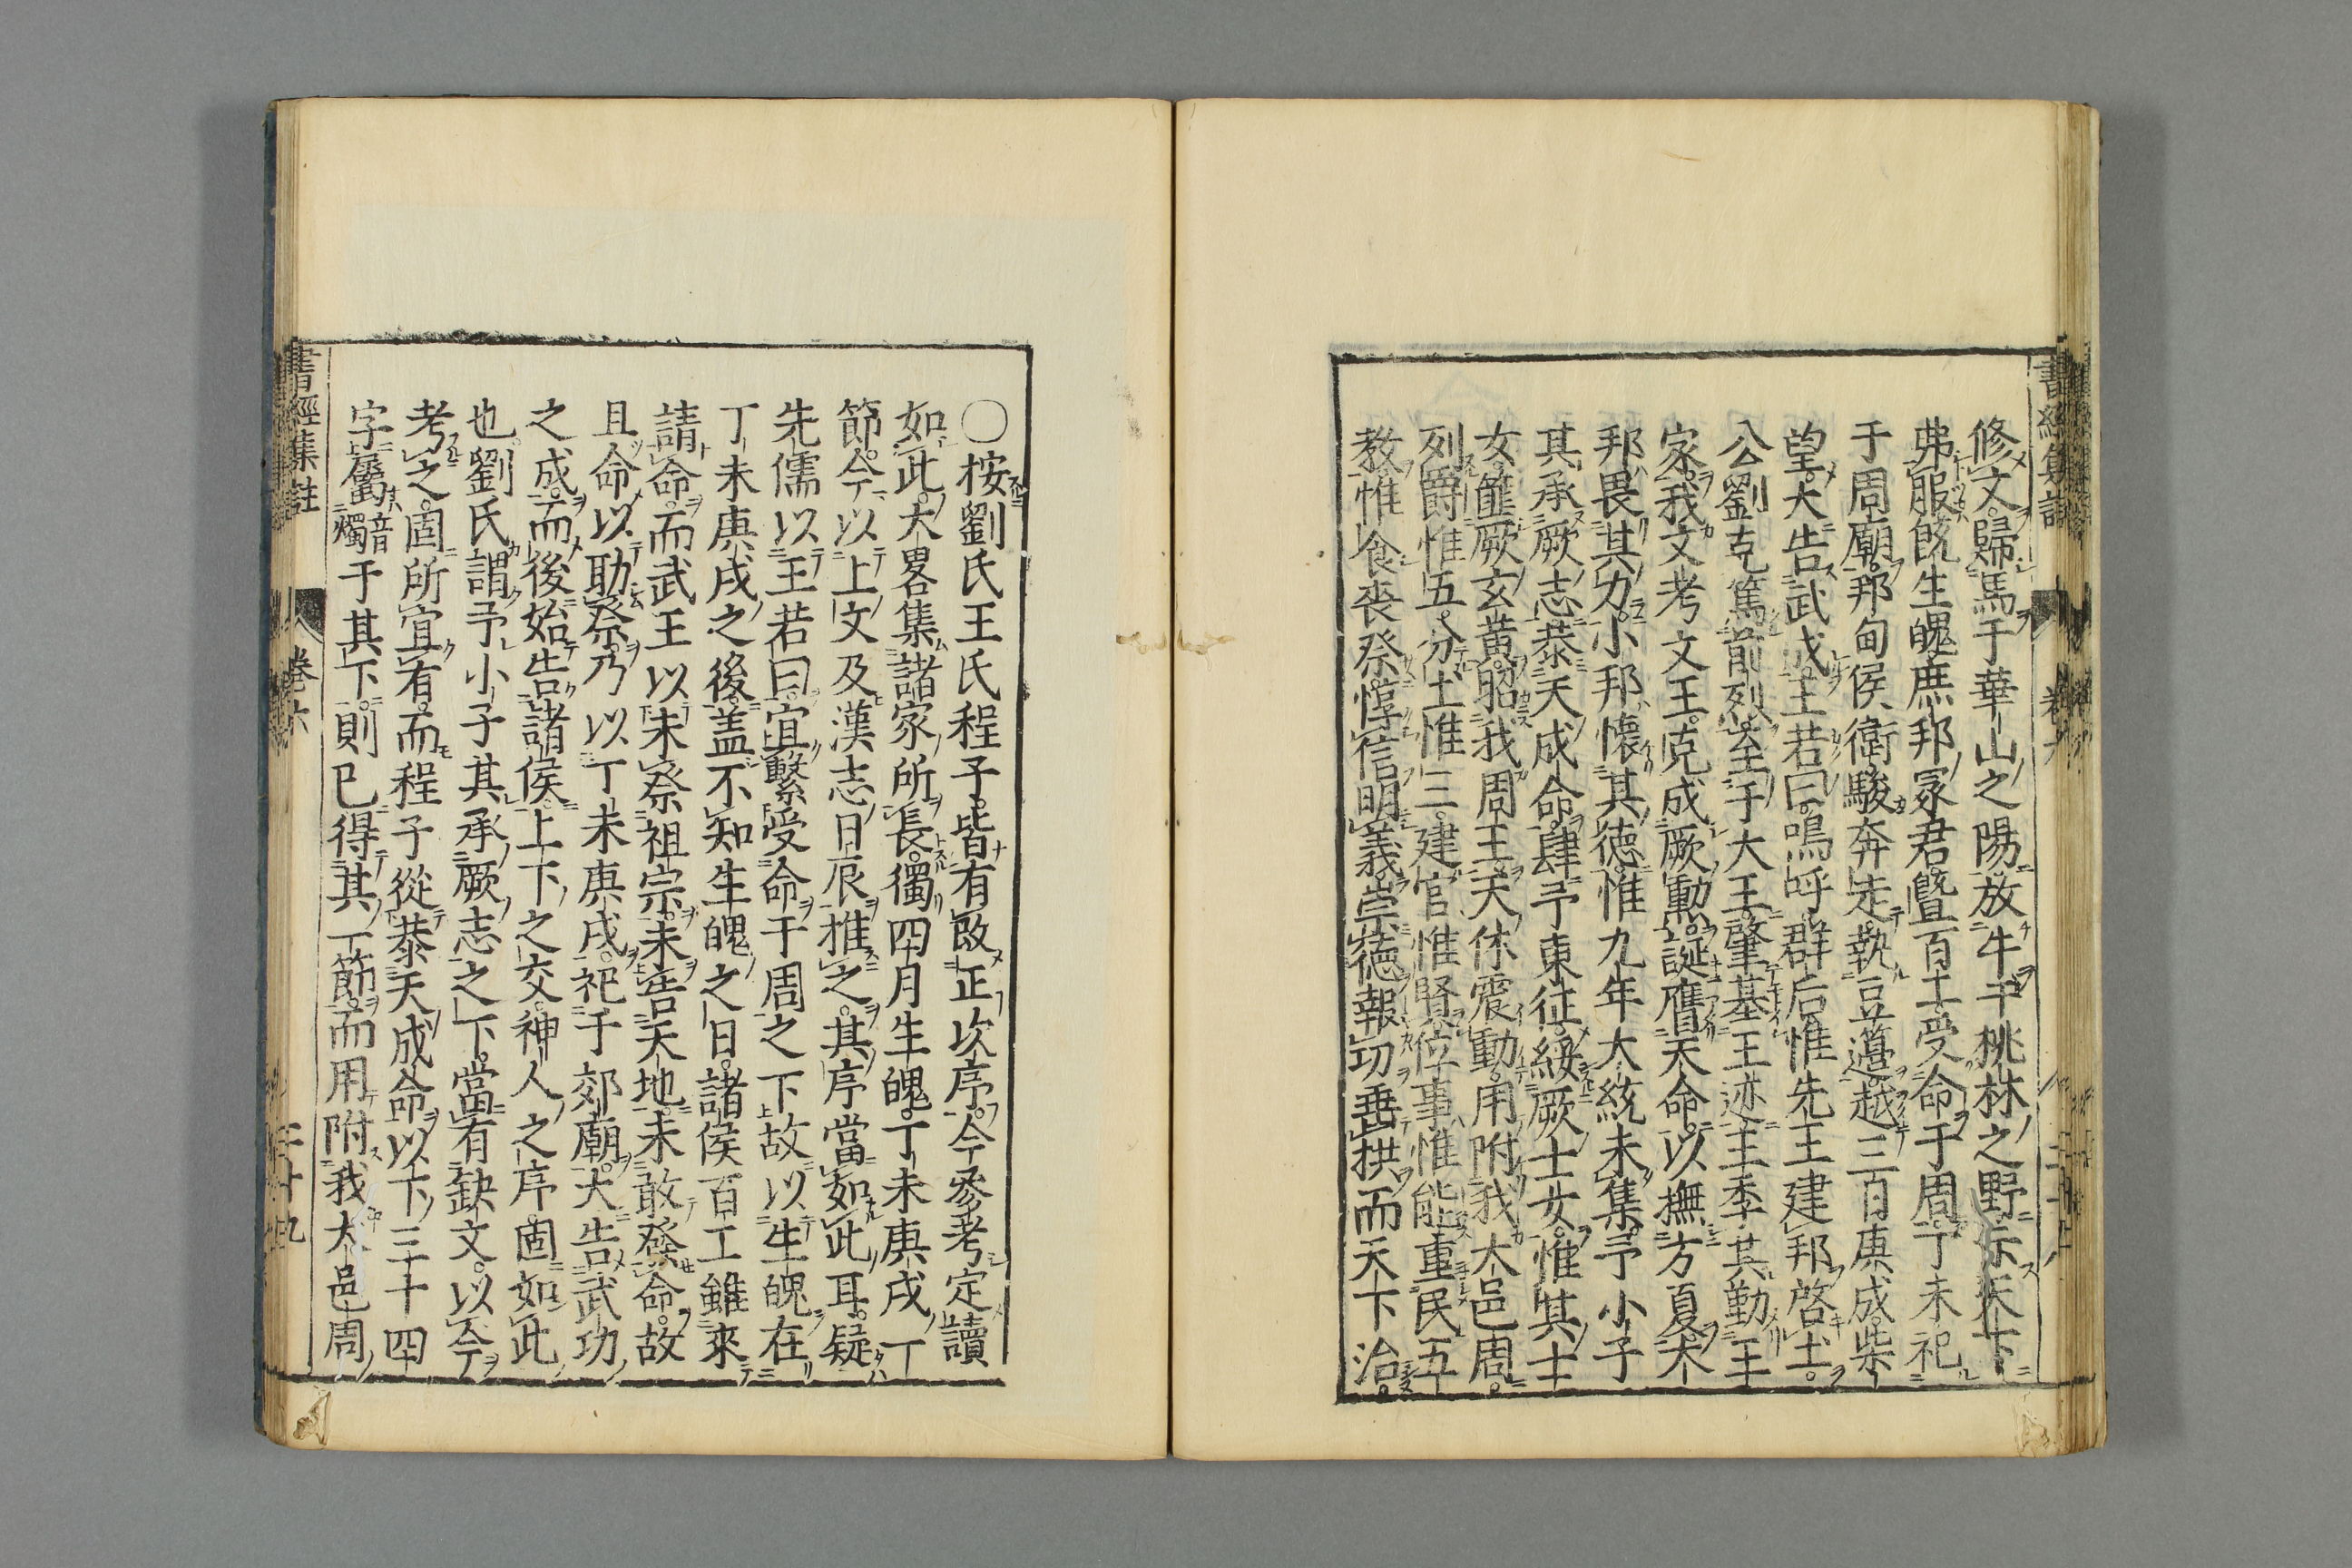 修文歸馬于華山之陽放牛于桃林之野示天下
弗服旣生魄庶邦冢君曁百工受命于周丁未祀
于周廟邦甸侯衛駿奔走執豆籩越三日庚戌柴
望大告武成王若曰嗚呼群后惟先王建邦啓土
公劉克篤前烈至于大王肇基王迹王季其勤王
家我文考文王克成厥勳誕膺天命以撫方夏大
邦畏其力小邦懷其德惟九年大統未集予小子
其承厥志恭天成命肆予東征綏厥士女惟其士
女篚厥玄黃昭我周王天休震動用附我大邑周
列爵惟五分土惟三建官惟賢位事惟能重民五
教惟食喪祭惇信明義崇德報功垂拱而天下治
〇按劉氏王氏程子皆有改正次序今參考定讀
如此大畧集諸家所長獨四月生魄丁未庚戌一
節今以上文及漢志日辰推之其序當如此耳疑
先儒以王若曰宜繫受命于周之下故以生魄在
丁未庚戌之後盖不知生魄之日諸侯百工雖來
請命而武王以未祭祖宗未告天地未敢發命故
且命以助祭乃以丁未庚戌祀于郊廟大告武功
之成而後始告諸侯上下之交神人之序固如此
也劉氏謂予小子其承厥志之下當有缺文以今
考之固所宜有而程子從恭天成命以下三十四
字屬音燭于其下則已得其一節而用附我大邑周
書經集註 卷六 二十九